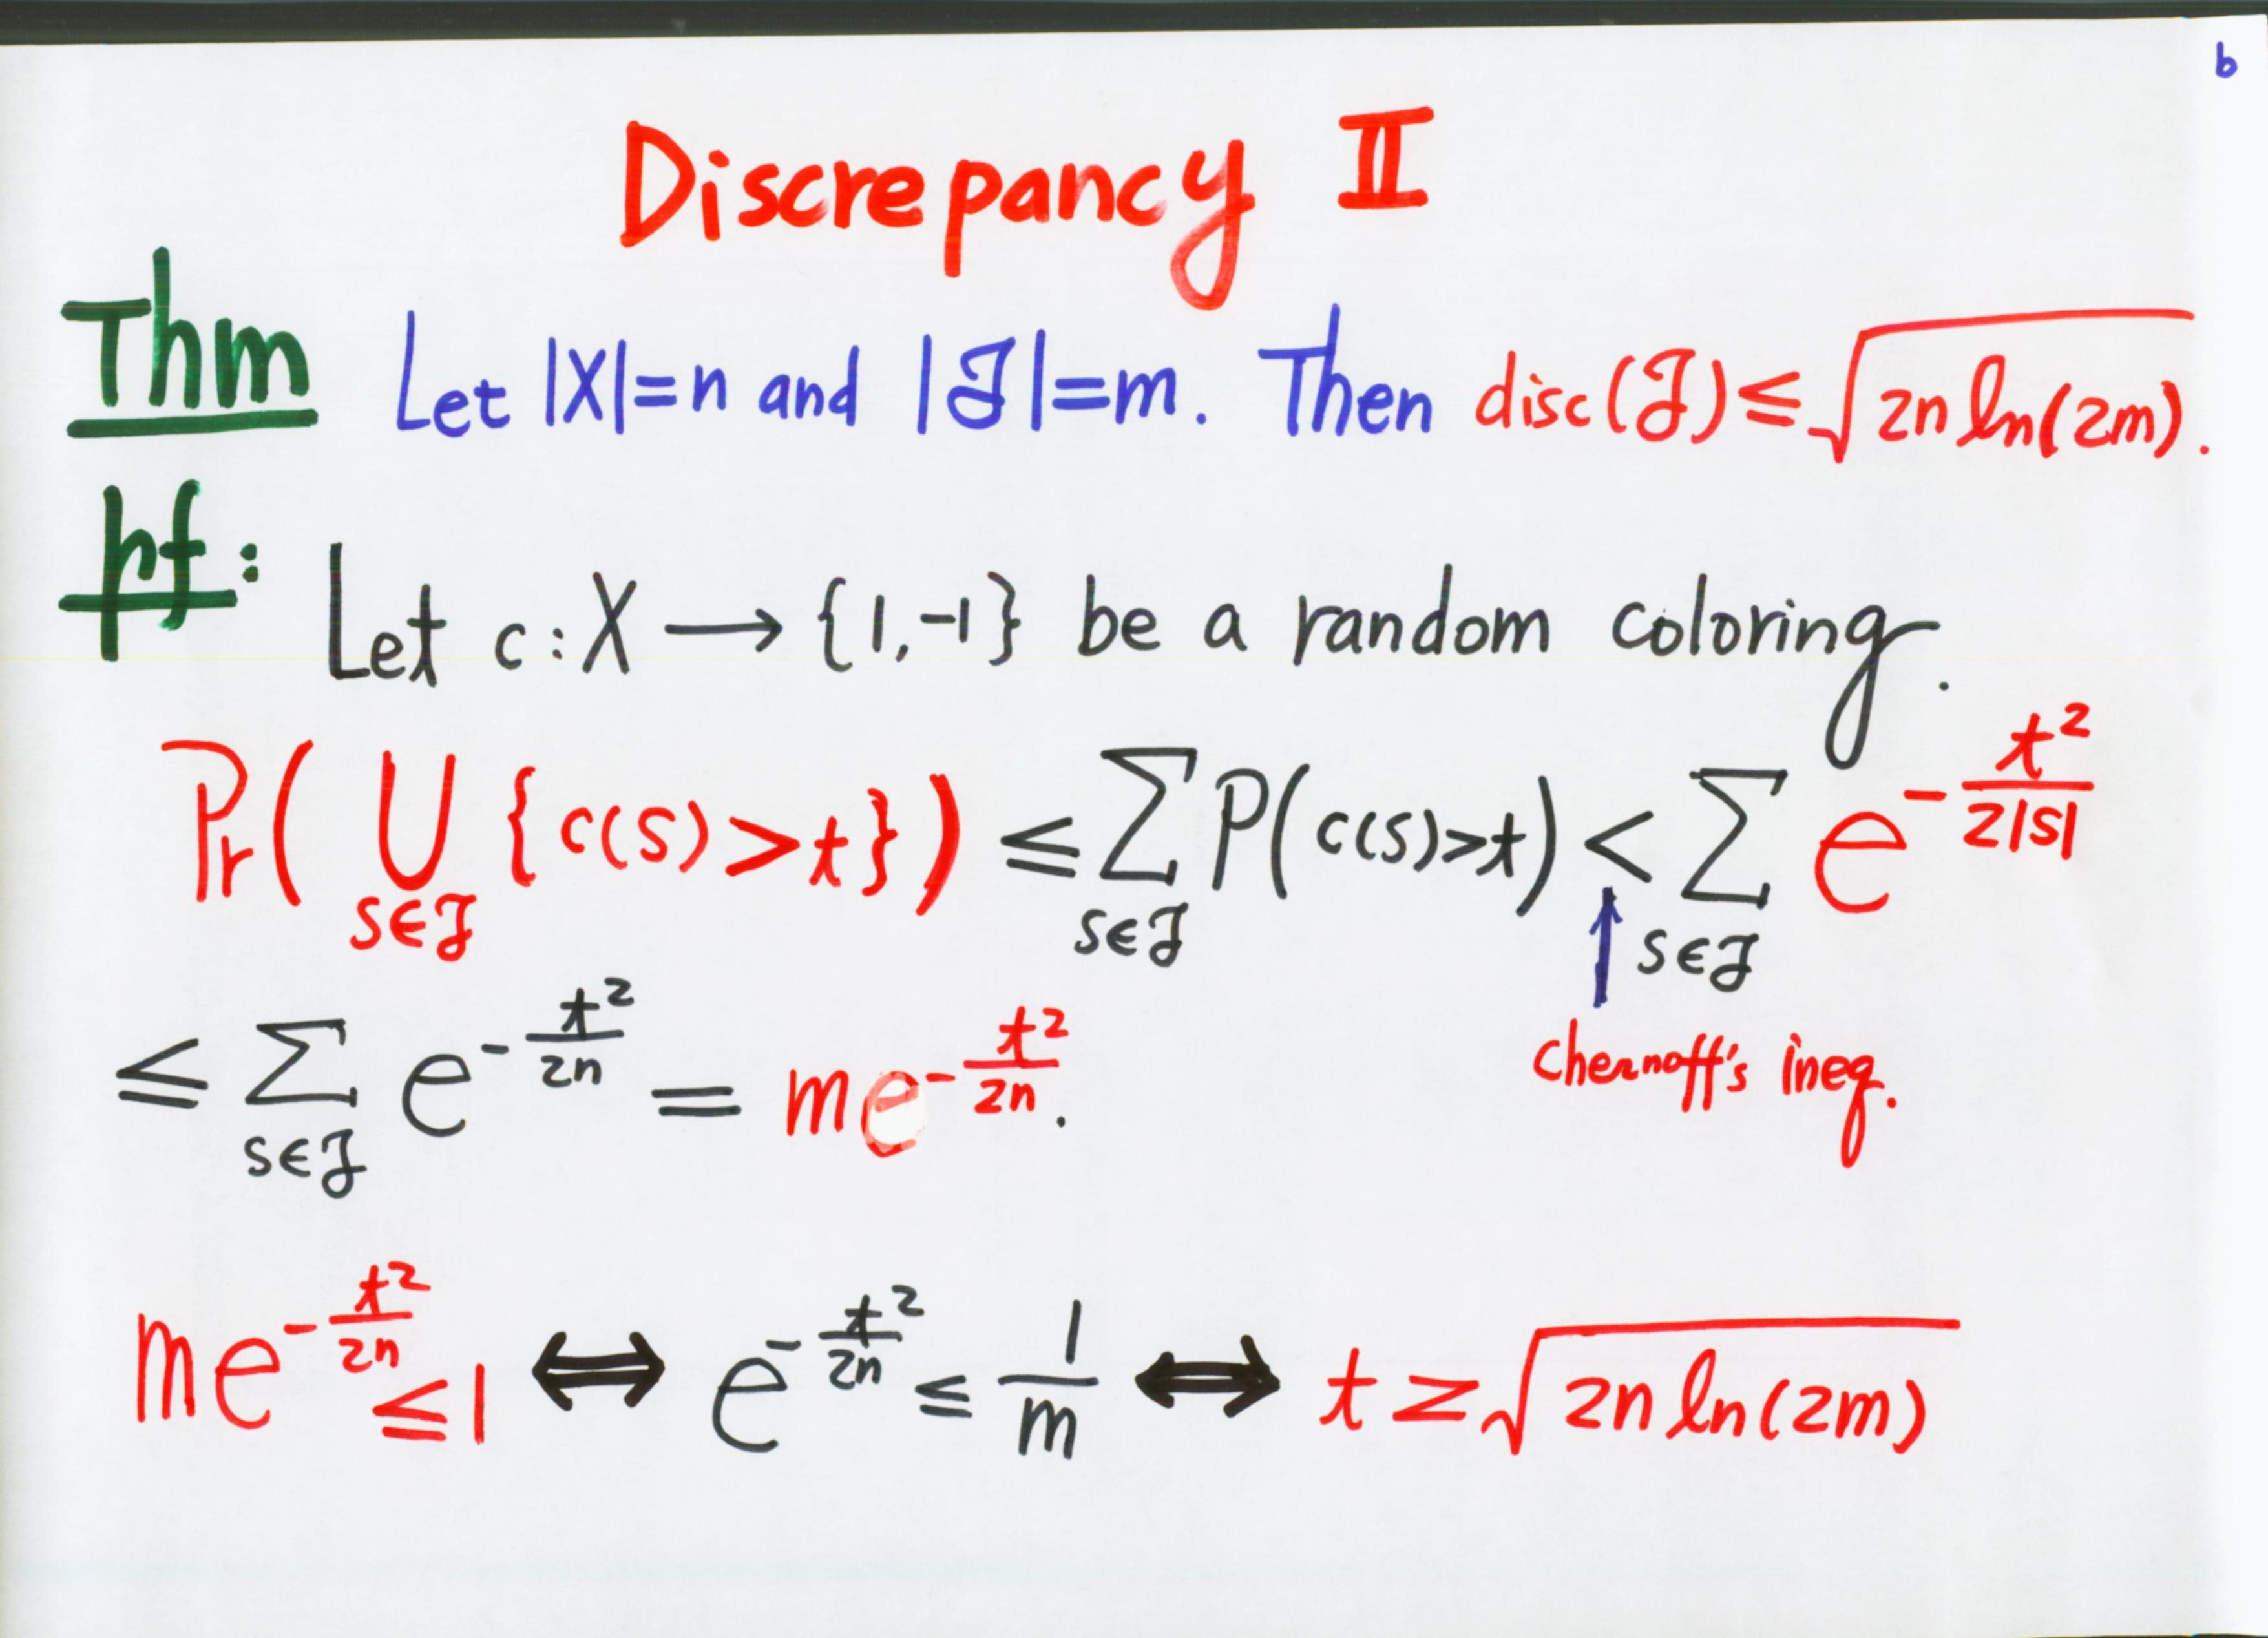 b
Discrepancy II
Thm Let |X|=n and |ℱ|=m. Then disc(ℱ)≤√(2n ln(2m)).
pf: Let c:X⟶{1,-1} be a random coloring.
Pr(⋃_{S∈ℱ} {c(S)>t}) ≤ ∑_{S∈ℱ} P(c(S)>t) < ∑_{S∈ℱ} e^{-t²/2|S|}
Chernoff's ineq.
≤ ∑_{S∈ℱ} e^{-t²/2n} = me^{-t²/2n}.
me^{-t²/2n} ≤ 1 ⟺ e^{-t²/2n} ≤ 1/m ⟺ t ≥ √(2n ln(2m))